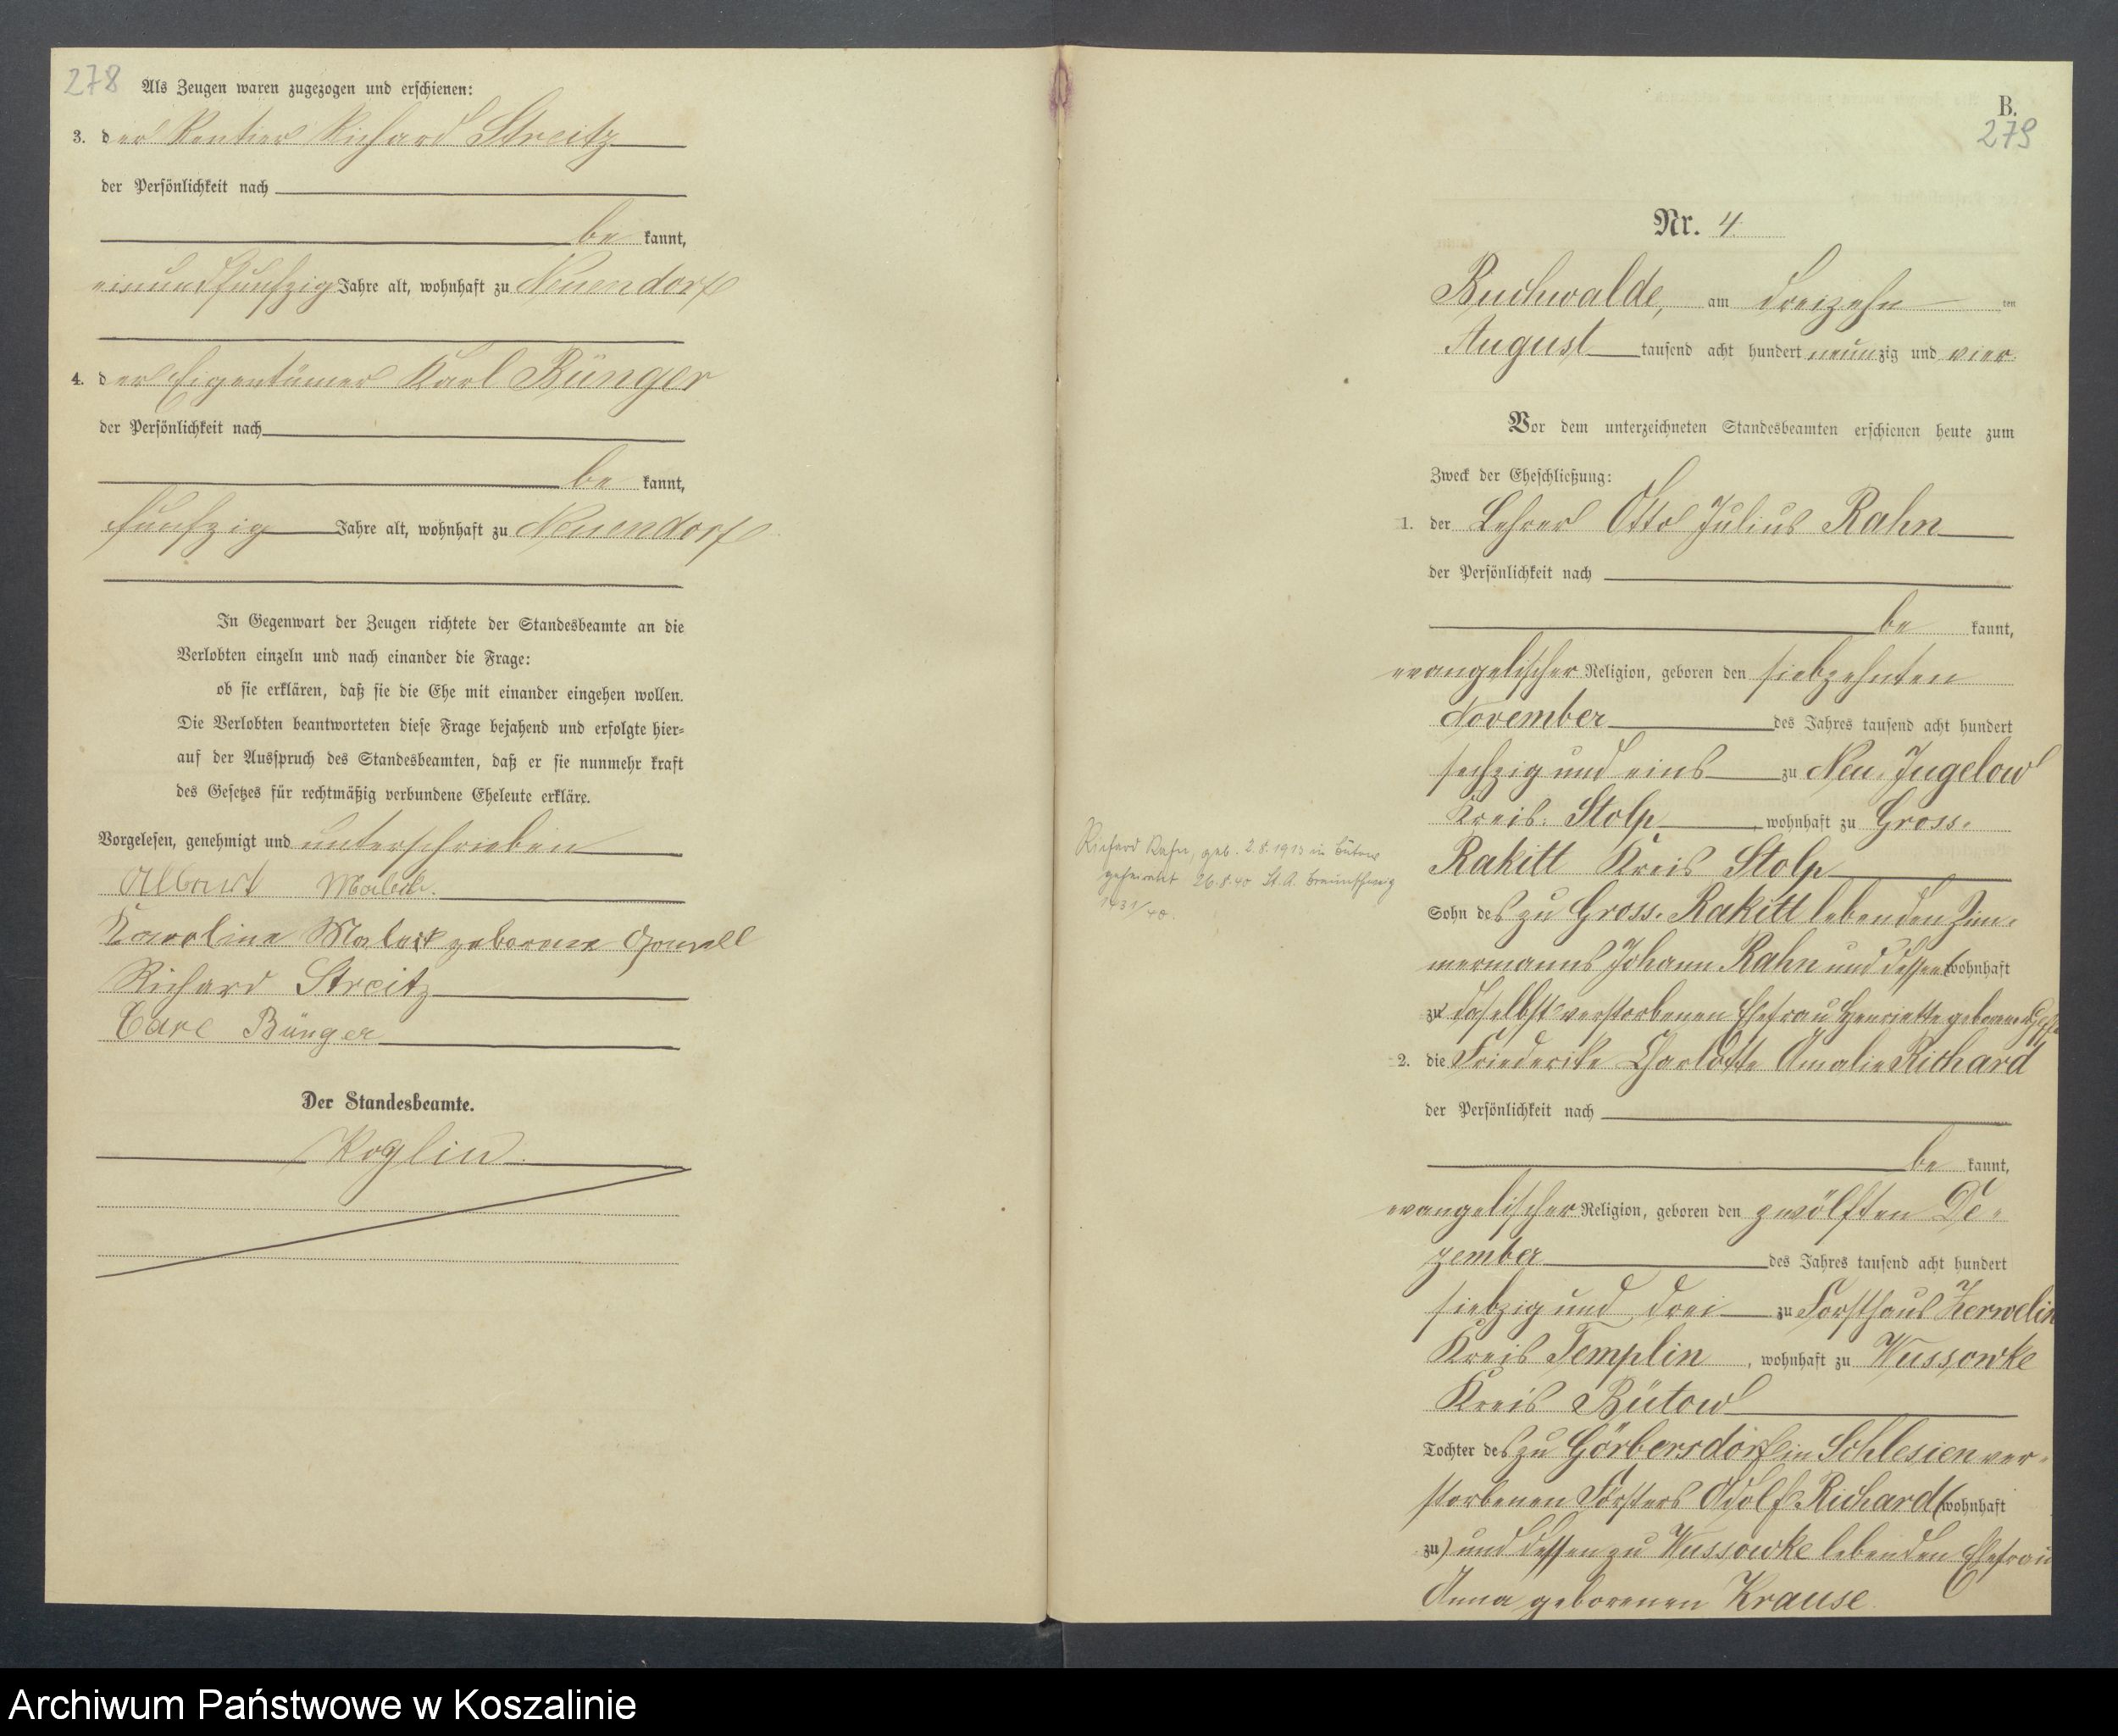 278
Als Zeugen waren zugezogen und erschienen:
3. der Rentier Richard Streitz
der Persönlichkeit nach
be kannt,
einundfunfzig Jahre alt, wohnhaft zu Neuendorf
4. der Eigentümer Karl Bünger
der Persönlichkeit nach
be kannt,
funfzig Jahre alt, wohnhaft zu Neuendorf
In Gegenwart der Zeugen richtete der Standesbeamte an die
Verlobten einzeln und nach einander die Frage:
ob sie erklären, daß sie die Ehe mit einander eingehen wollen.
Die Verlobten beantworteten diese Frage bejahend und erfolgte hier-
auf der Ausspruch des Standesbeamten, daß er sie nunmehr kraft
des Gesetzes für rechtmäßig verbundene Eheleute erkläre.
Vorgelesen, genehmigt und unterschrieben
Albert
Karoline geborene
Richard Streitz
Carl Bünger
Der Standesbeamte.
Koglin.
B.
279
Nr. 4
Buchwalde, am dreizehn ten
August tausend acht hundert neunzig und vier.
Vor dem unterzeichneten Standesbeamten erschienen heute zum
Zweck der Eheschließung:
1. der Lehrer Otto Julius Rahn
der Persönlichkeit nach
be kannt,
evangelischer Religion, geboren den siebzehnten
November des Jahres tausend acht hundert
sechzig und eins zu Neu-Jugelow
Kreis Stolp, wohnhaft zu Gross-
Rakitt Kreis Stolp
Sohn des zu Gross-Rakitt lebenden Zim-
mermanns Johann Rahn und dessen (wohnhaft
zu) daselbst verstorbenen Ehefrau Henriette geborenen
2. die Friederike Charlotte Amalie Richard
der Persönlichkeit nach
be kannt,
evangelischer Religion, geboren den zwölften De-
zember des Jahres tausend acht hundert
siebzig und drei zu Forsthaus Zerwelin
Kreis Templin, wohnhaft zu Wussowke
Kreis Bütow
Tochter des zu Görbersdorf in Schlesien ver-
storbenen Försters Adolf Richard (wohnhaft
zu) und dessen zu Wussowke lebenden Ehefrau
Anna geborenen Krause.
Richard Rahn, geb. 2.8.1913 in Bütow
geheiratet 26.8.40 St. A. Braunschweig
1431/40.
Archiwum Państwowe w Koszalinie